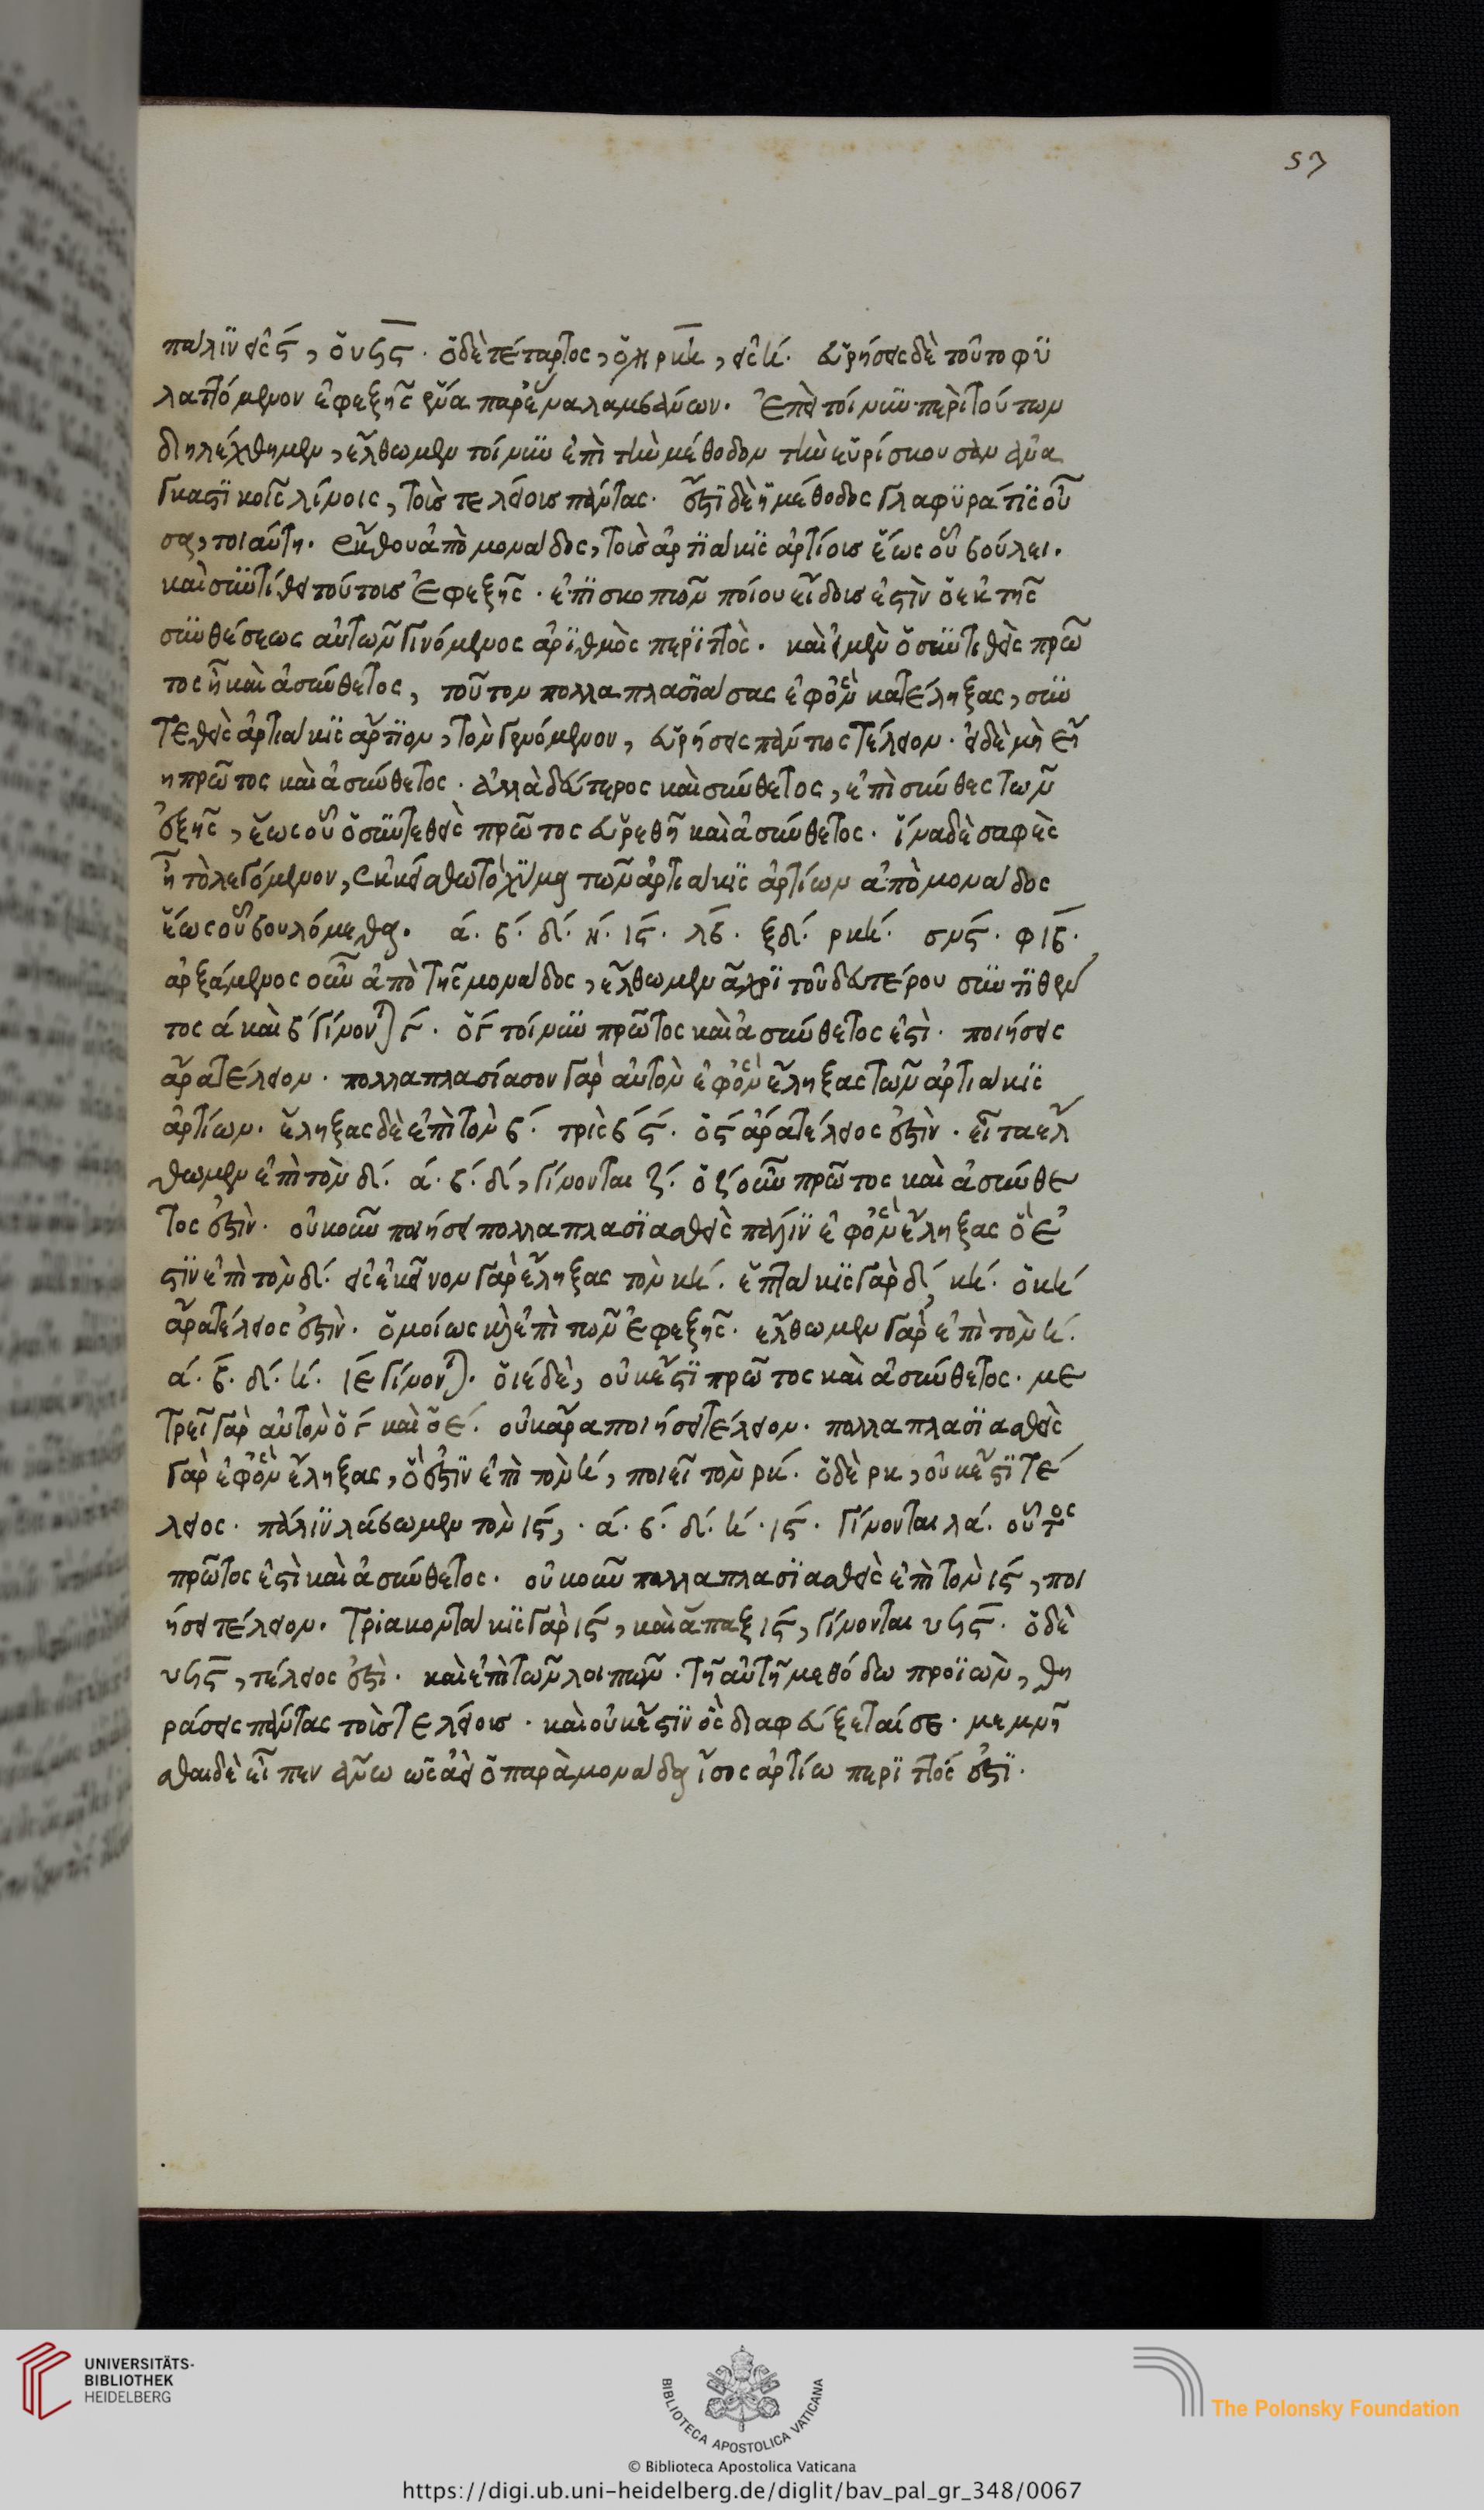 57
πάλιν εἰς ϛ, ὁ υϟϛ. ὁ δὲ τέταρτος, ὁ ͵ηρκη, εἰς η. εὑρήσεις δὲ τοῦτο φυ
λαττόμενον ἐφεξῆς ἕνα παρ' ἕνα λαμβάνων. ἐπεὶ τοίνυν περὶ τούτων
διηλέχθημεν, ἔλθωμεν τοίνυν ἐπὶ τὴν μέθοδον τὴν εὑρίσκουσαν ἀνα
γκαστικοῖς λίνοις, τοὺς τελείους πάντας. ἔστι δὲ ἡ μέθοδος γλαφυρά τις οὖ
σα, τοιαύτη. ἔκθου ἀπὸ μονάδος, τοὺς ἀρτιάκις ἀρτίους ἕως οὗ βούλει.
καὶ συντίθει τούτους ἐφεξῆς. ἐπισκοπῶν ποίου εἴδους ἐστὶν ὁ ἐκ τῆς
συνθέσεως αὐτῶν γινόμενος ἀριθμὸς περιττὸς. καὶ εἰ μὲν ὁ συντεθεὶς πρῶ
τος ἦ καὶ ἀσύνθετος, τοῦτον πολλαπλασιάσας ἐφ' ὃν κατέληξας, συν
τεθεὶς ἀρτιάκις ἄρτιον, τὸν γενόμενον, εὑρήσεις πάντως τέλειον. εἰ δὲ μὴ εἴ
η πρῶτος καὶ ἀσύνθετος. ἀλλὰ δεύτερος καὶ σύνθετος, ἐπισύνθες τῶν
ἑξῆς, ἕως οὗ ὁ συντεθεὶς πρῶτος εὑρεθῆ καὶ ἀσύνθετος. ἵνα δὲ σαφὲς
ἦ τὸ λεγόμενον, ἐκκείσθω τὸ χύμα τῶν ἀρτιάκις ἀρτίων ἀπὸ μονάδος
ἕως οὗ βουλόμεθα. α. β. δ. η. ιϛ. λβ. ξδ. ρκη. σνϛ. φιβ.
ἀρξάμενος οὖν ἀπὸ τῆς μονάδος, ἔλθωμεν ἄχρι τοῦ δευτέρου συντιθέν
τος α καὶ β γίνονται γ. ὁ γ τοίνυν πρῶτος καὶ ἀσύνθετος ἐστὶ. ποιήσεις
ἄρα τέλειον. πολλαπλασίασον γὰρ αὐτὸν ἐφ' ὃν ἔληξας τῶν ἀρτιάκις
ἀρτίων. ἔληξας δὲ ἐπὶ τὸν β. τρὶς β ϛ. ὁ ϛ ἄρα τέλειος ἐστὶν. εἶτα ἔλ
θωμεν ἐπὶ τὸν δ. α. β. δ, γίνονται ζ. ὁ ζ οὖν πρῶτος καὶ ἀσύνθε
τος ἐστὶν. οὐκοῦν ποιήσει πολλαπλασιασθεὶς πάλιν ἐφ' ὃν ἔληξας ὅ ἐ
στιν ἐπὶ τὸν δ. εἰς ἐκεῖνον γὰρ ἔληξας τὸν κη. ἑπτάκις γὰρ δ, κη. ὁ κη
ἄρα τέλειος ἐστὶν. ὁμοίως καὶ ἐπὶ τῶν ἐφεξῆς. ἔλθωμεν γὰρ ἐπὶ τὸν η.
α. β. δ. η. ιε γίνονται. ὁ ιε δὲ, οὐκ ἔστι πρῶτος καὶ ἀσύνθετος. με
τρεῖ γὰρ αὐτὸν ὁ γ καὶ ὁ ε. οὐκ ἄρα ποιήσει τέλειον. πολλαπλασιασθεὶς
γὰρ ἐφ' ὃν ἔληξας, ὅ ἐστιν ἐπὶ τὸν η, ποιεῖ τὸν ρκ. ὁ δὲ ρκ, οὐκ ἔστι τέ
λειος. πάλιν λάβωμεν τὸν ιϛ,. α. β. δ. η. ιϛ. γίνονται λα. οὗτος
πρῶτος ἐστὶ καὶ ἀσύνθετος. οὐκοῦν πολλαπλασιασθεὶς ἐπὶ τὸν ιϛ, ποι
ήσει τέλειον. τριακοντάκις γὰρ ιϛ, καὶ ἅπαξ ιϛ, γίνονται υϟϛ. ὁ δὲ
υϟϛ, τέλειος ἐστὶ. καὶ ἐπὶ τῶν λοιπῶν. τῆ αὐτῆ μεθόδω προϊὼν, θη
ράσεις πάντας τοὺς τελείους. καὶ οὐκ ἔστιν ὃς διαφεύξεταί σε. μεμνῆ
σθαι δὲ εἶπεν ἄνω ὡς ἀεὶ ὁ παρὰ μονάδα ἴσος ἀρτίω περιττός ἐστι.
UNIVERSITÄTS-
BIBLIOTHEK
HEIDELBERG
BIBLIOTECA APOSTOLICA VATICANA
The Polonsky Foundation
© Biblioteca Apostolica Vaticana
https://digi.ub.uni-heidelberg.de/diglit/bav_pal_gr_348/0067